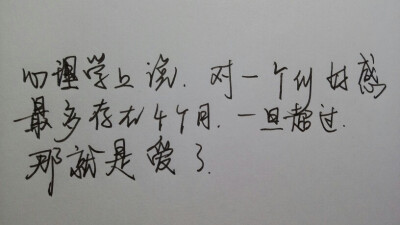 心理学上说.对一个人好感
最多存在4个月.一旦超过.
那就是爱了.